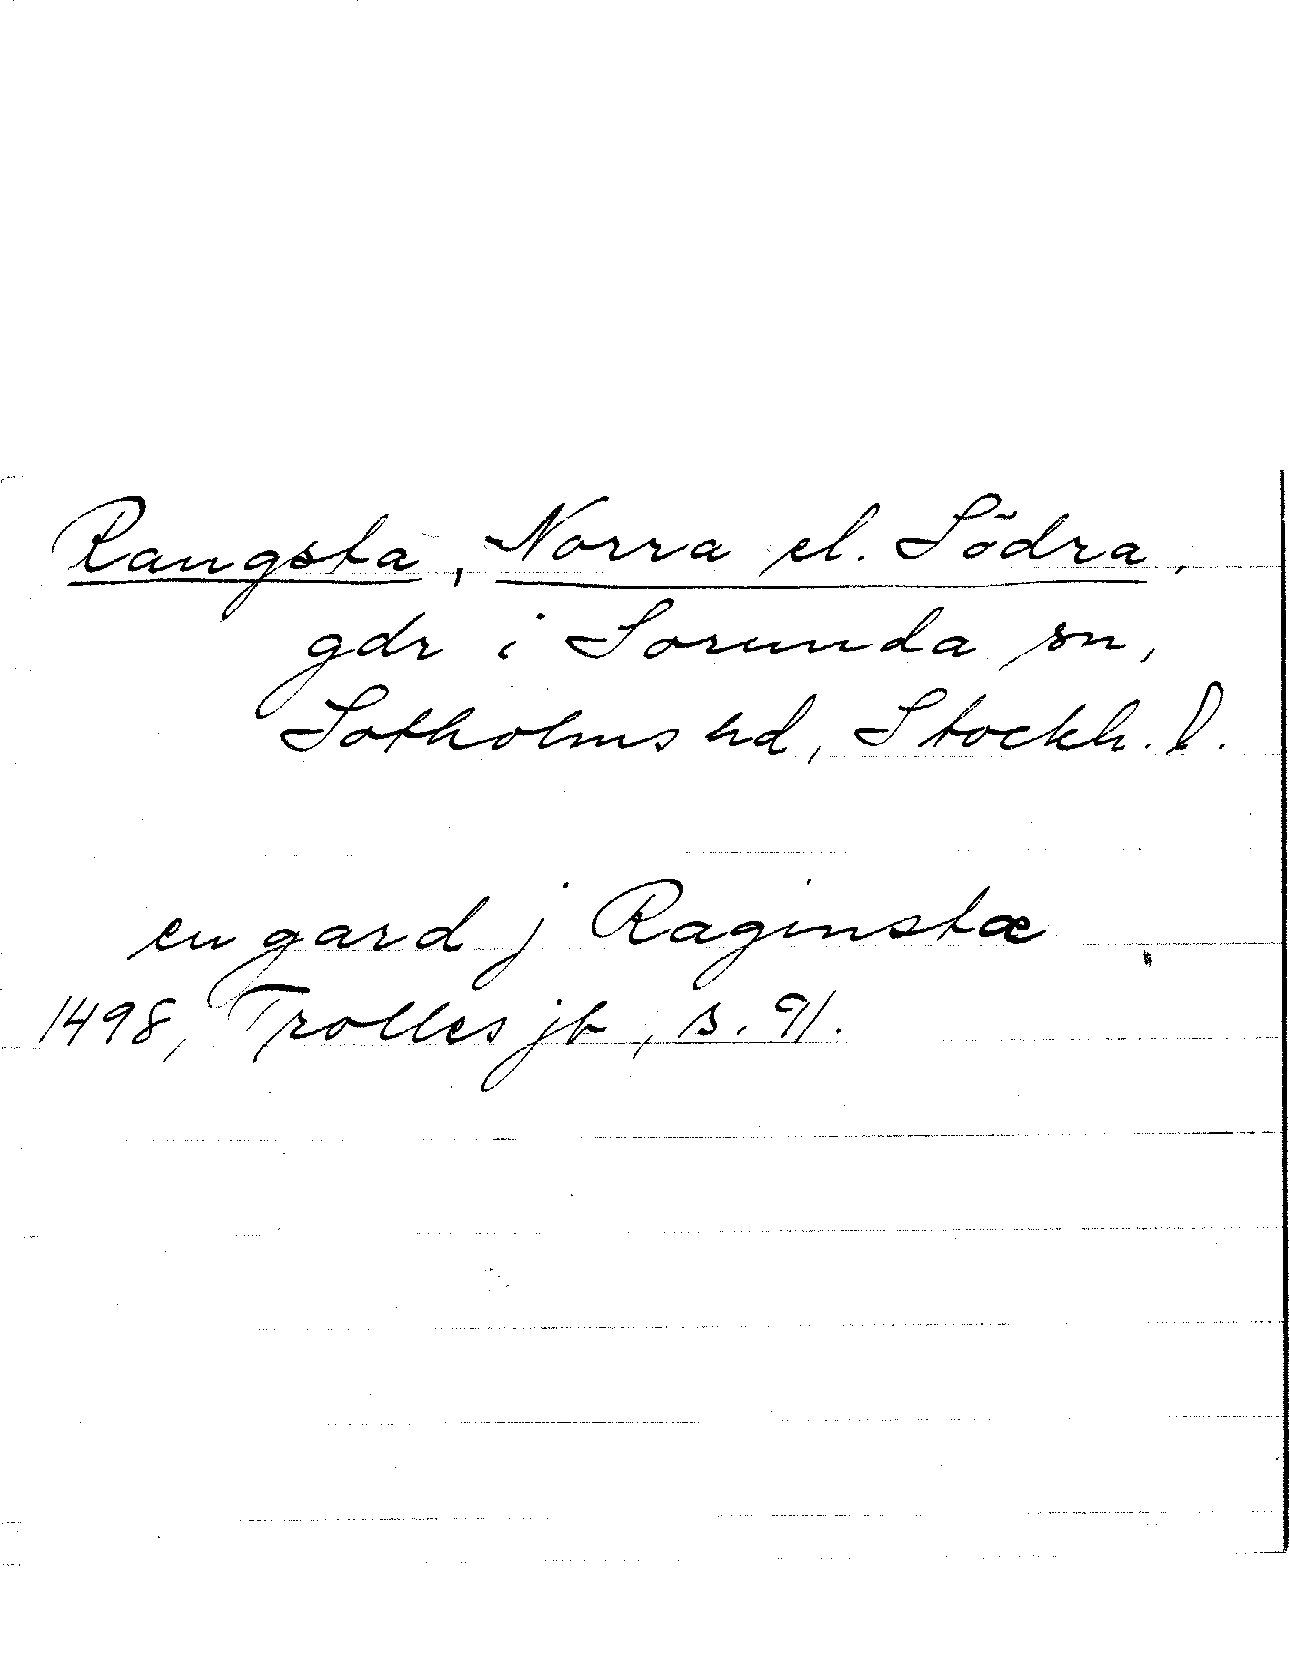 Rangsta, Norra el. Södra,
gdr i Sorunda sn,
Sotholms hd, Stockh. l.
en gard j Raginstæ
1498, Trolles jb, s. 91.